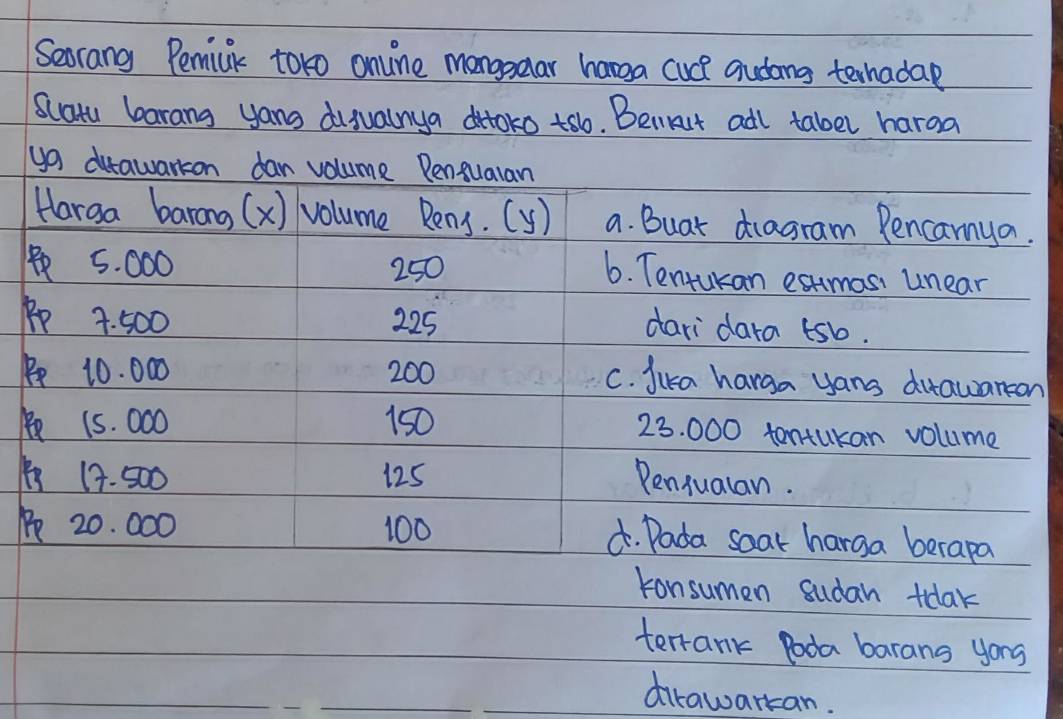 Seorang Pemilik toko online menggelar harga cuci gudang terhadap
suatu barang yang dijualnya ditoko tsb. Berikut adl tabel harga
yg ditawarkan dan volume Penjualan
Harga barang (x) Volume Penj. (y)
Rp 5.000 250
Rp 7.500 225
Rp 10.000 200
Rp 15.000 150
Rp 17.500 125
Rp 20.000 100
a. Buat diagram Pencarnya.
b. Tentukan estimasi linear
dari data tsb.
c. Jika harga yang ditawarkan
23.000 tentukan volume
Penjualan.
d. Pada saat harga berapa
konsumen sudah tdak
tertarik Pada barang yang
ditawarkan.